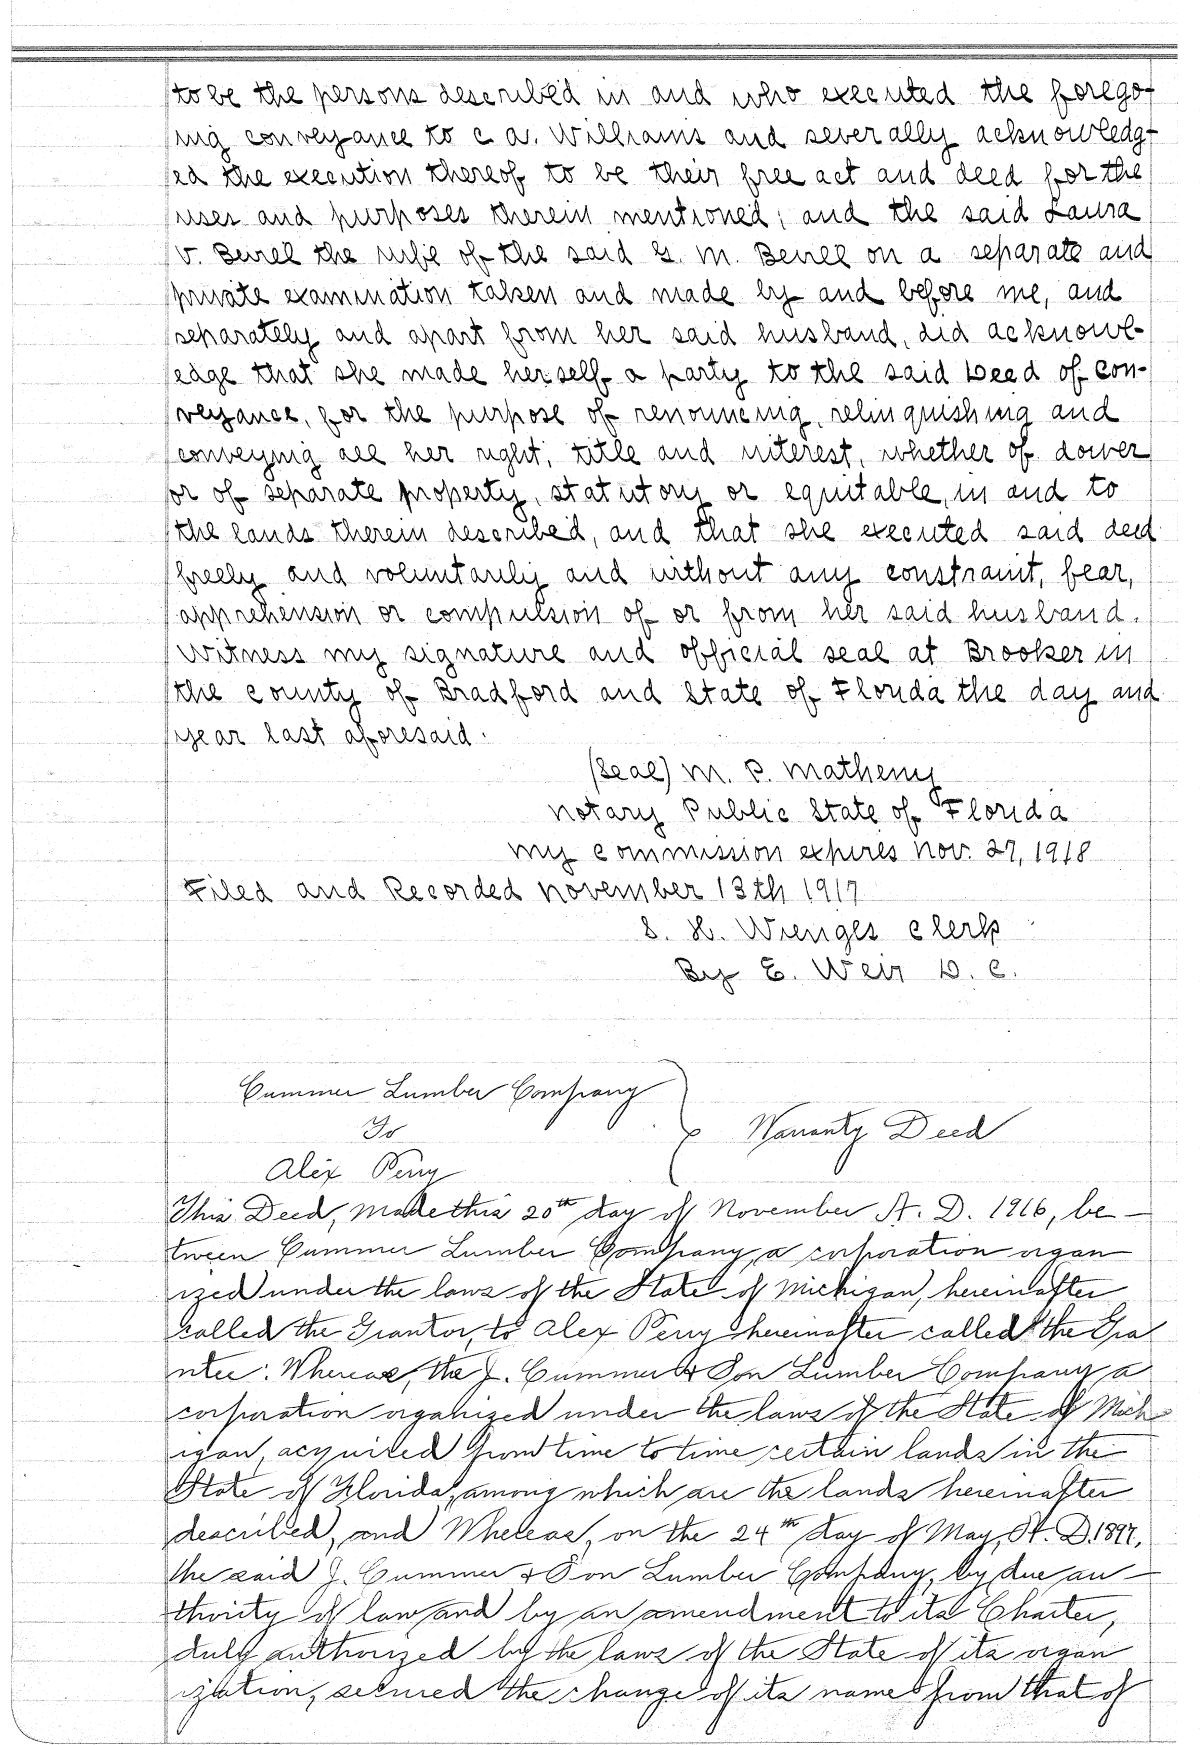 to be the persons described in and who executed the forego-
ing conveyance to C A. Williams and severally acknowledg-
ed the execution thereof to be their free act and deed for the
uses and purposes therein mentioned; and the said Laura
V. Bevill the wife of the said G. M. Bevill on a separate and
private examination taken and made by and before me, and
separately and apart from her said husband, did acknowl-
edge that she made herself a party to the said Deed of Con-
veyance, for the purpose of renouncing, relinquishing and
conveying all her right, title and interest, whether of dower
or of separate property, statutory or equitable, in and to
the lands therein described, and that she executed said deed
freely and voluntarily and without any constraint, fear,
apprehension or compulsion of or from her said husband.
Witness my signature and official seal at Brooker in
the county of Bradford and State of Florida the day and
year last aforesaid.
(Seal) M. P. Matheny
Notary Public State of Florida
My commission expires Nov. 27, 1918
Filed and Recorded November 13th 1917
S. H. Wienges Clerk
By E. Weir D. C.
Cummer Lumber Company
To
Warranty Deed
Alex Perry
This Deed, made this 20th day of November A. D. 1916, be-
tween Cummer Lumber Company, a corporation organ
ized under the laws of the State of Michigan, hereinafter
called the Grantor, to Alex Perry hereinafter called the Gra
ntee: Whereas, the J. Cummer & Son Lumber Company a
corporation organized under the laws of the State of Mich-
igan, acquired from time to time certain lands in the
State of Florida, among which are the lands hereinafter
described, and Whereas, on the 24th day of May, A. D. 1897,
the said J. Cummer & Son Lumber Company, by due au-
thority of law and by an amendment to its Charter,
duly authorized by the laws of the State of its organ
ization, secured the change of its name from that of